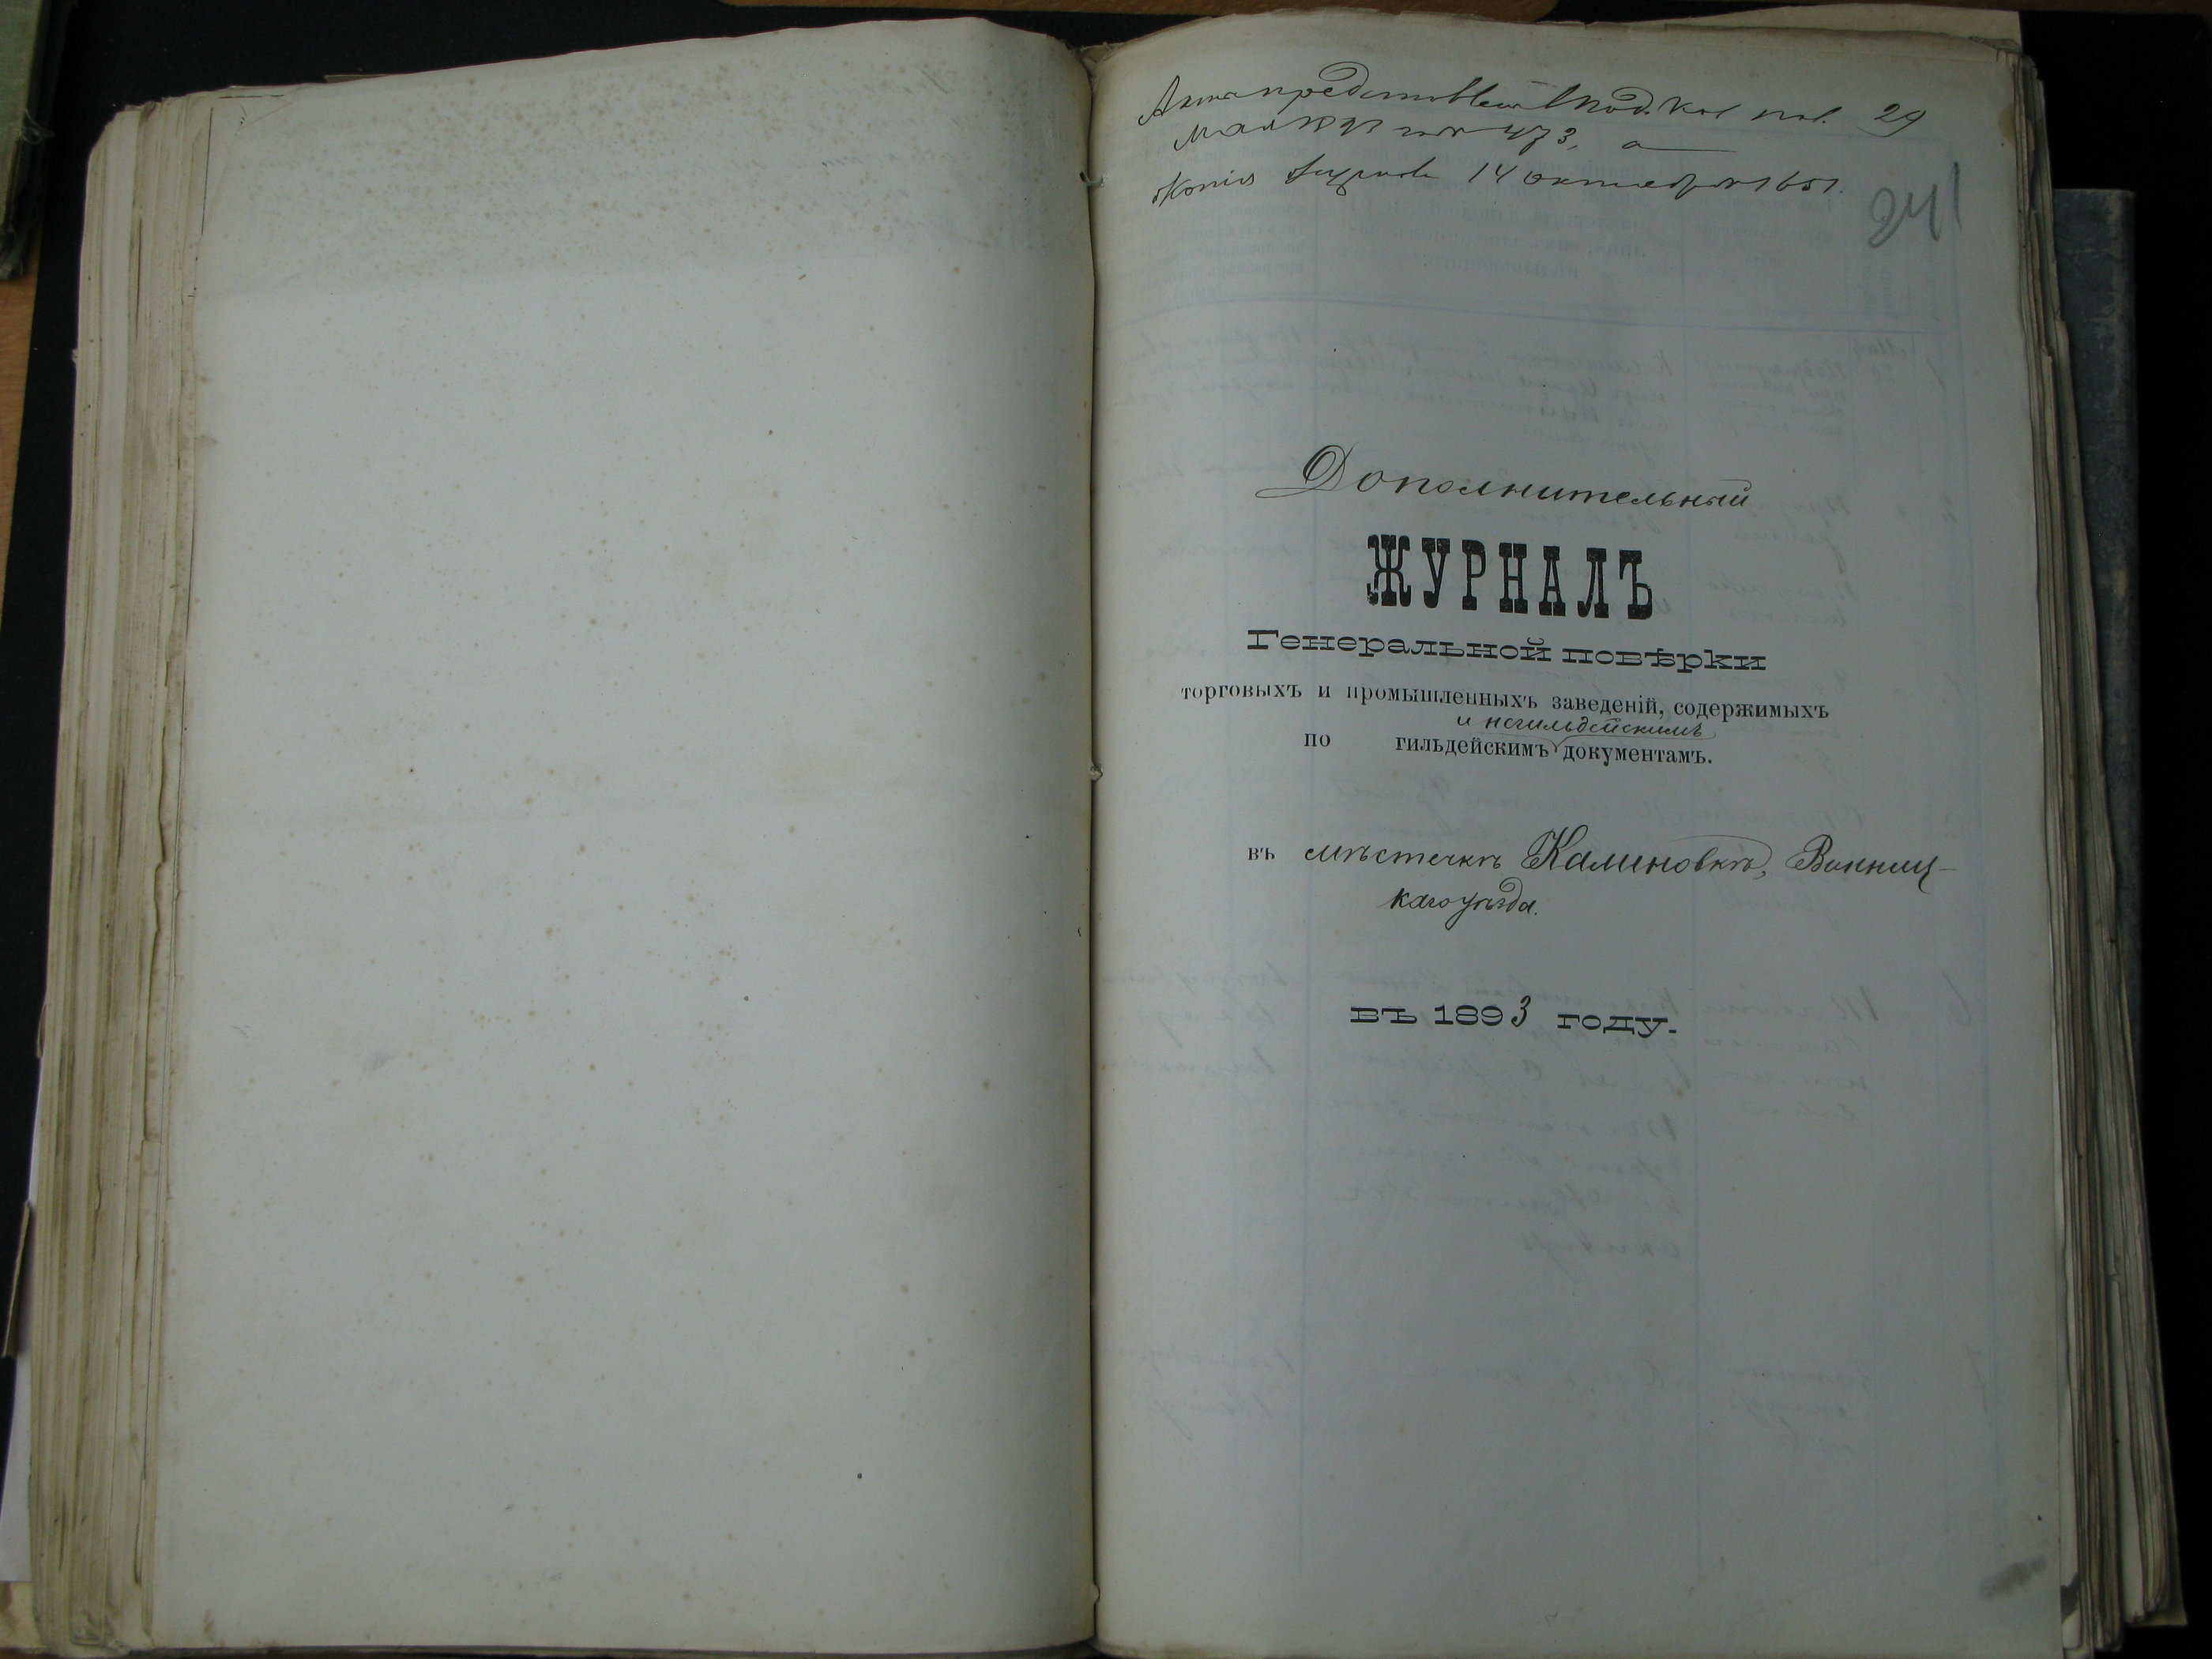 Акты представлены в Под. Каз. пал. 29
мая 1893 года 473, а
Копія журнала 14 октября 1651.
241
Дополнительный
ЖУРНАЛЪ
Генеральной повѣрки
торговыхъ и промышленныхъ заведеній, содержимыхъ
и негильдейскимъ
по гильдейскимъ документамъ.
въ мѣстечкѣ Калиновкѣ, Винниц-
каго уѣзда.
въ 1893 году.